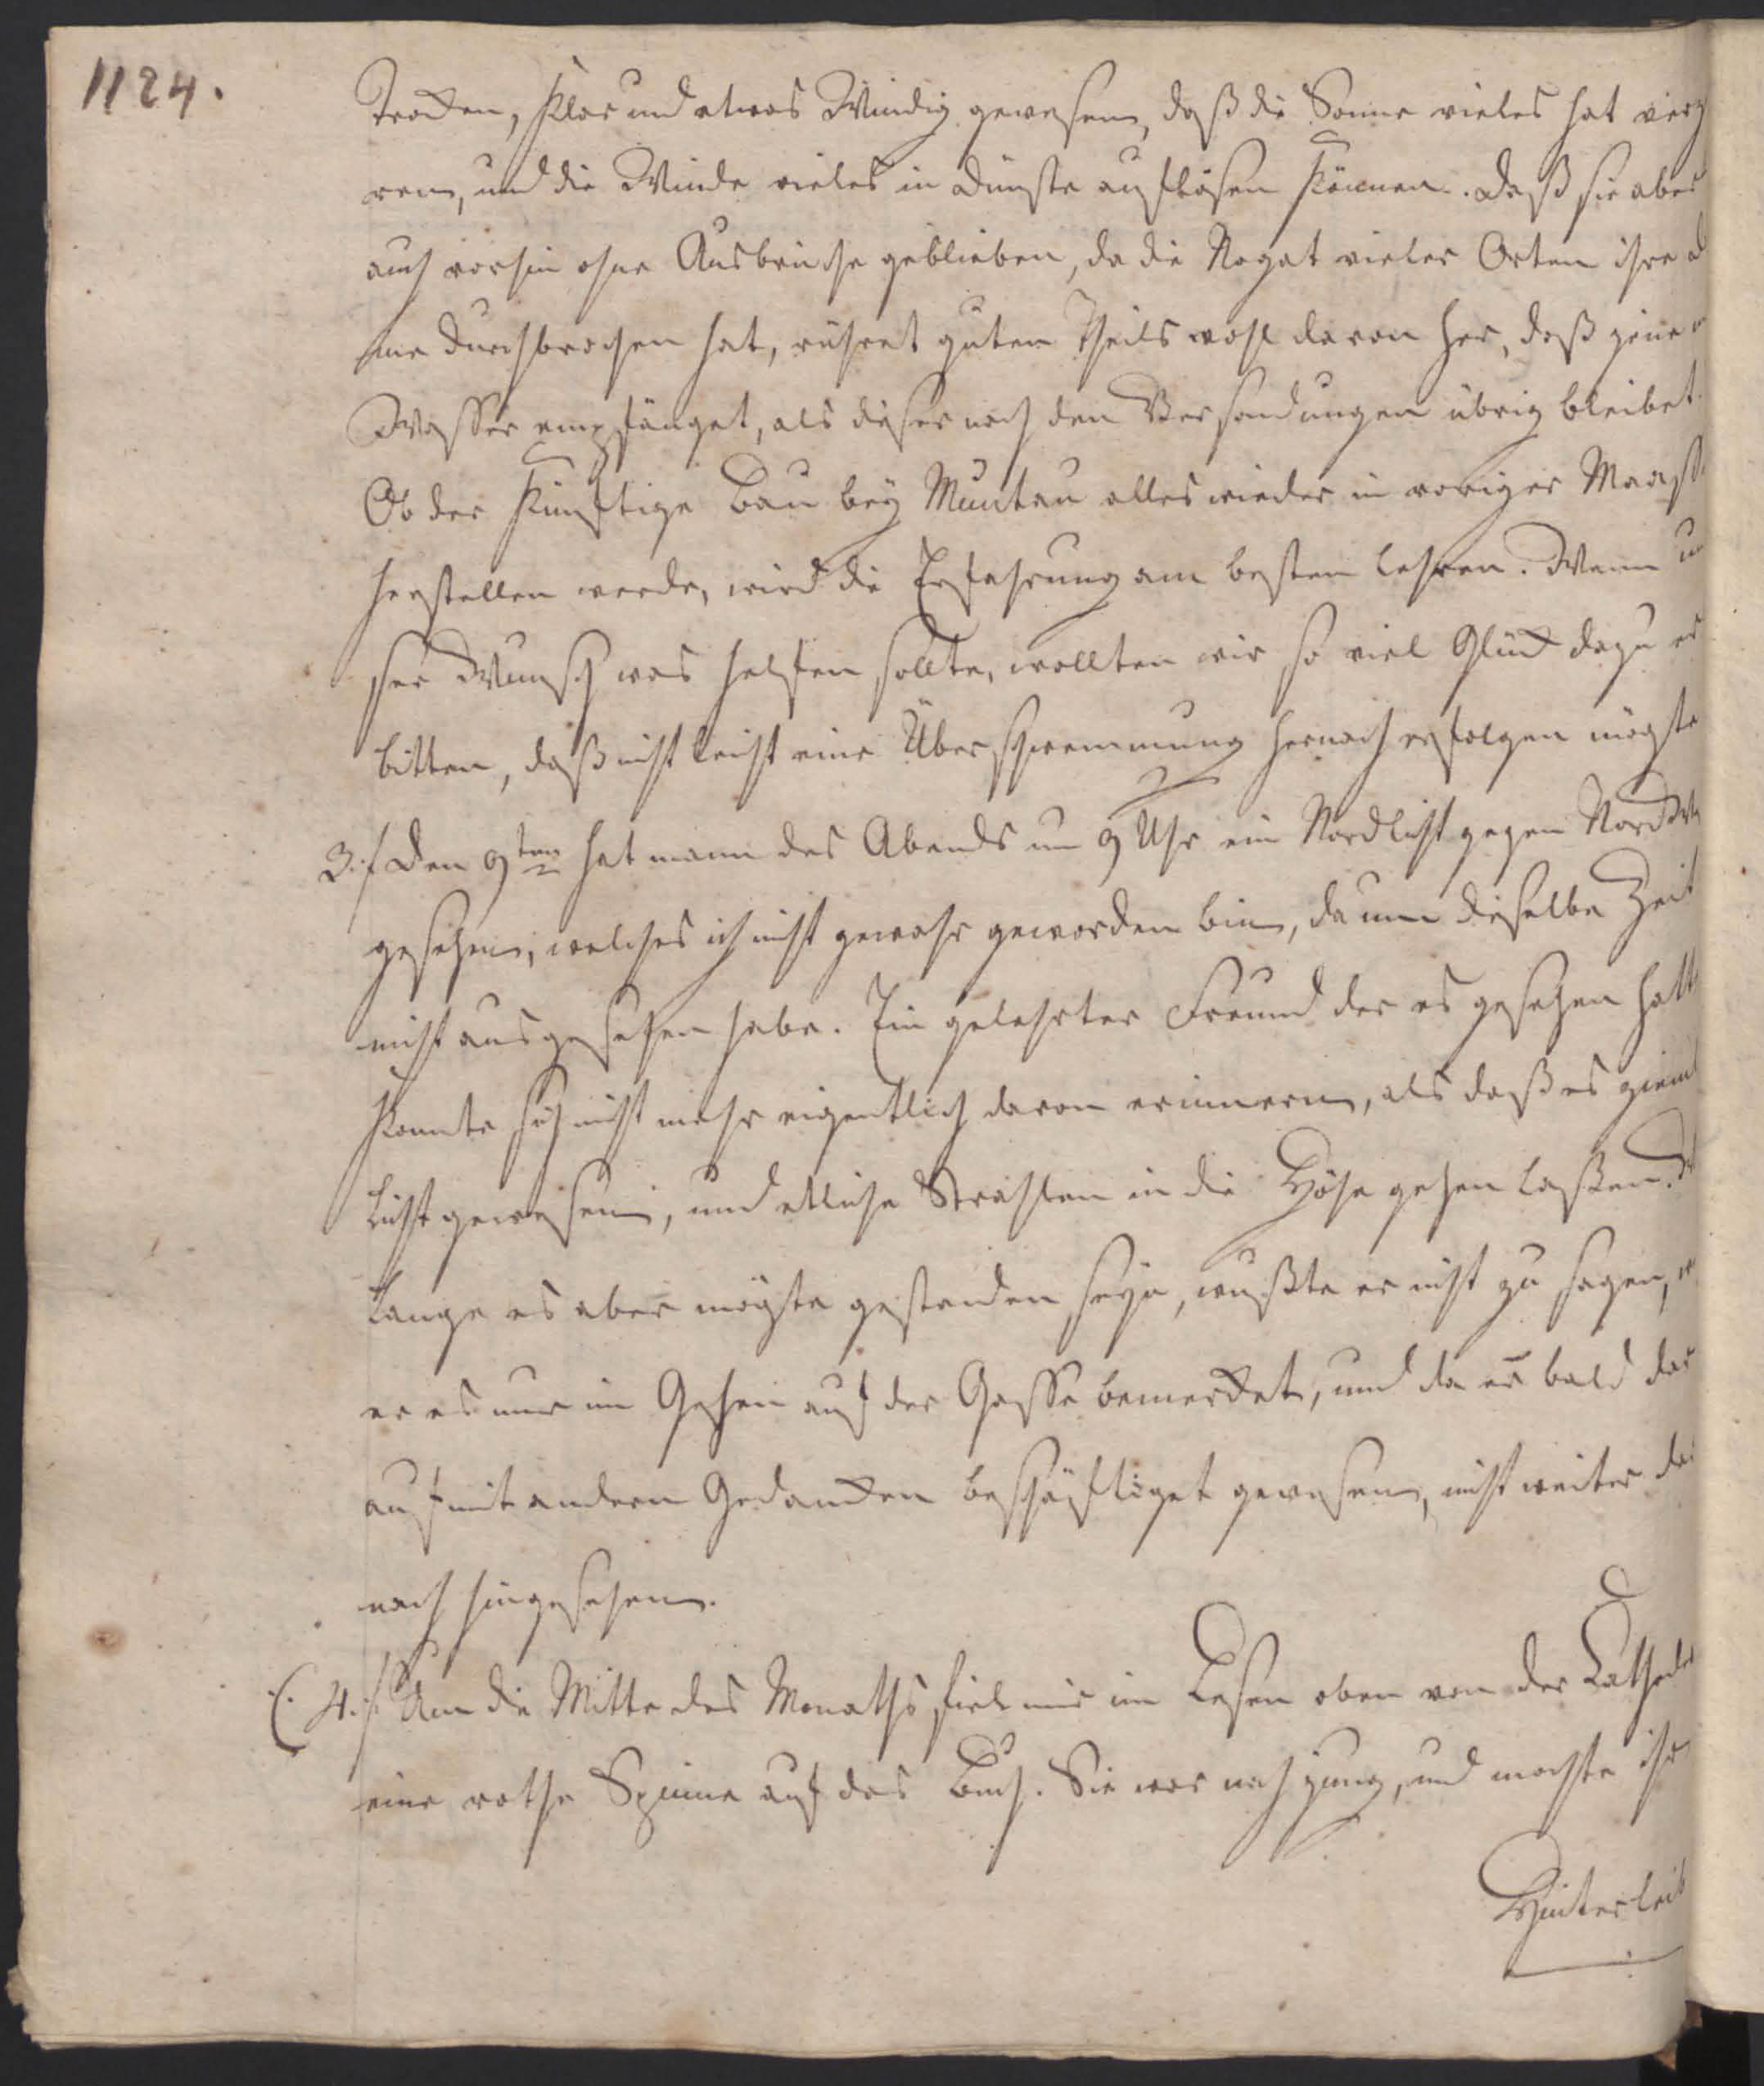 1124.
Trocken, klar und etwas Windig gewesen, daß die Sonne vieles hat verz
ren, und die Winde vieles in Dünste auflösen können. Daß sie aber
auch vorhin ohne Ausbrüche geblieben, da die Nogat vieler Orten ihre D
me durchbrochen hat, rühret guten Theils wohl davon her, daß jene m
Wasser empfänget, als dieser nach den Versandungen übrig bleibet.
Ob der künftige Bau bey Muntau alles wieder in voriger Maass
herstellen werde, wird die Erfahrung am besten lehren. Wenn un
ser Wunsch was helfen sollte, wollten wir so viel Glück dazu er
bitten, daß nicht leicht eine Überschwemmung hernach erfolgen mögte
3./ Den 9ten hat mann des Abends um 9 Uhr ein Nordlicht gegen NordW
gesehen, welches ich nicht gewahr geworden bin, da um dieselbe Zeit
nicht ausgesehen habe. Ein gelehrter Freund der es gesehen hatte
konnte sich nicht mehr eigentlich davon erinnern, als daß es ziem
licht gewesen, und etliche Strahlen in die Höhe gehen laßen.
Lange es aber mögte gestanden seyn, wußte er nicht zu sagen, w
er es nur im Gehen auf der Gasse bemercket, und da er bald dar
auf mit andern Gedancken beschäftiget gewesen, nicht weiter da
nach hingesehen.
(4./ Um die Mitte des Monaths fiel mir im Lesen oben von der Cathed
eine rothe Spinne auf das Buch. Sie war noch jung, und machte ihr
Hinterleib